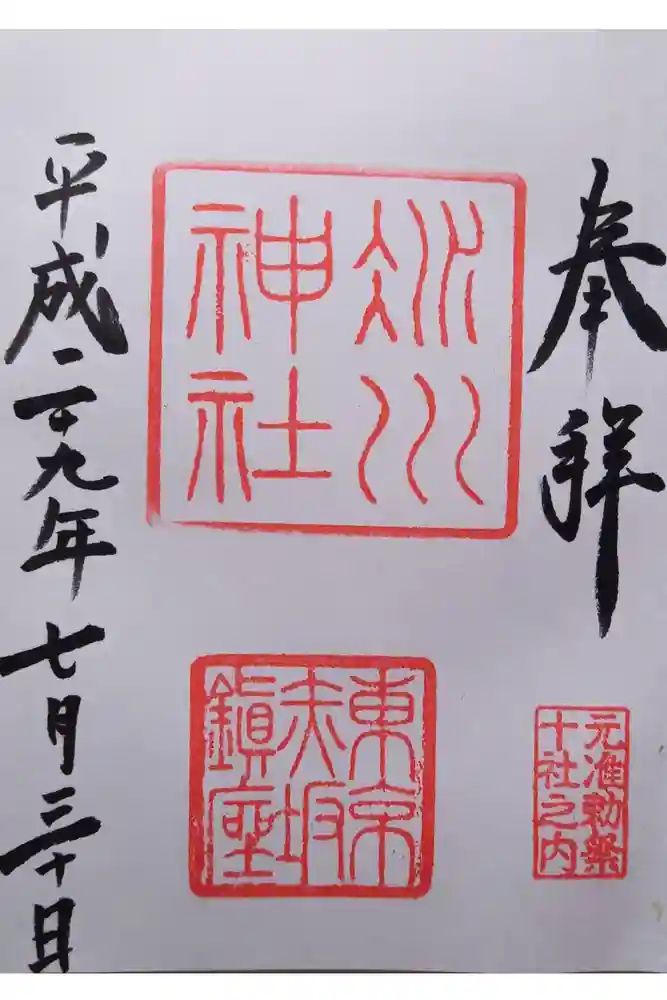 奉拝
元准勅祭
十社之内
氷川
神社
東京
赤坂
鎮座
平成二十九年七月三十日